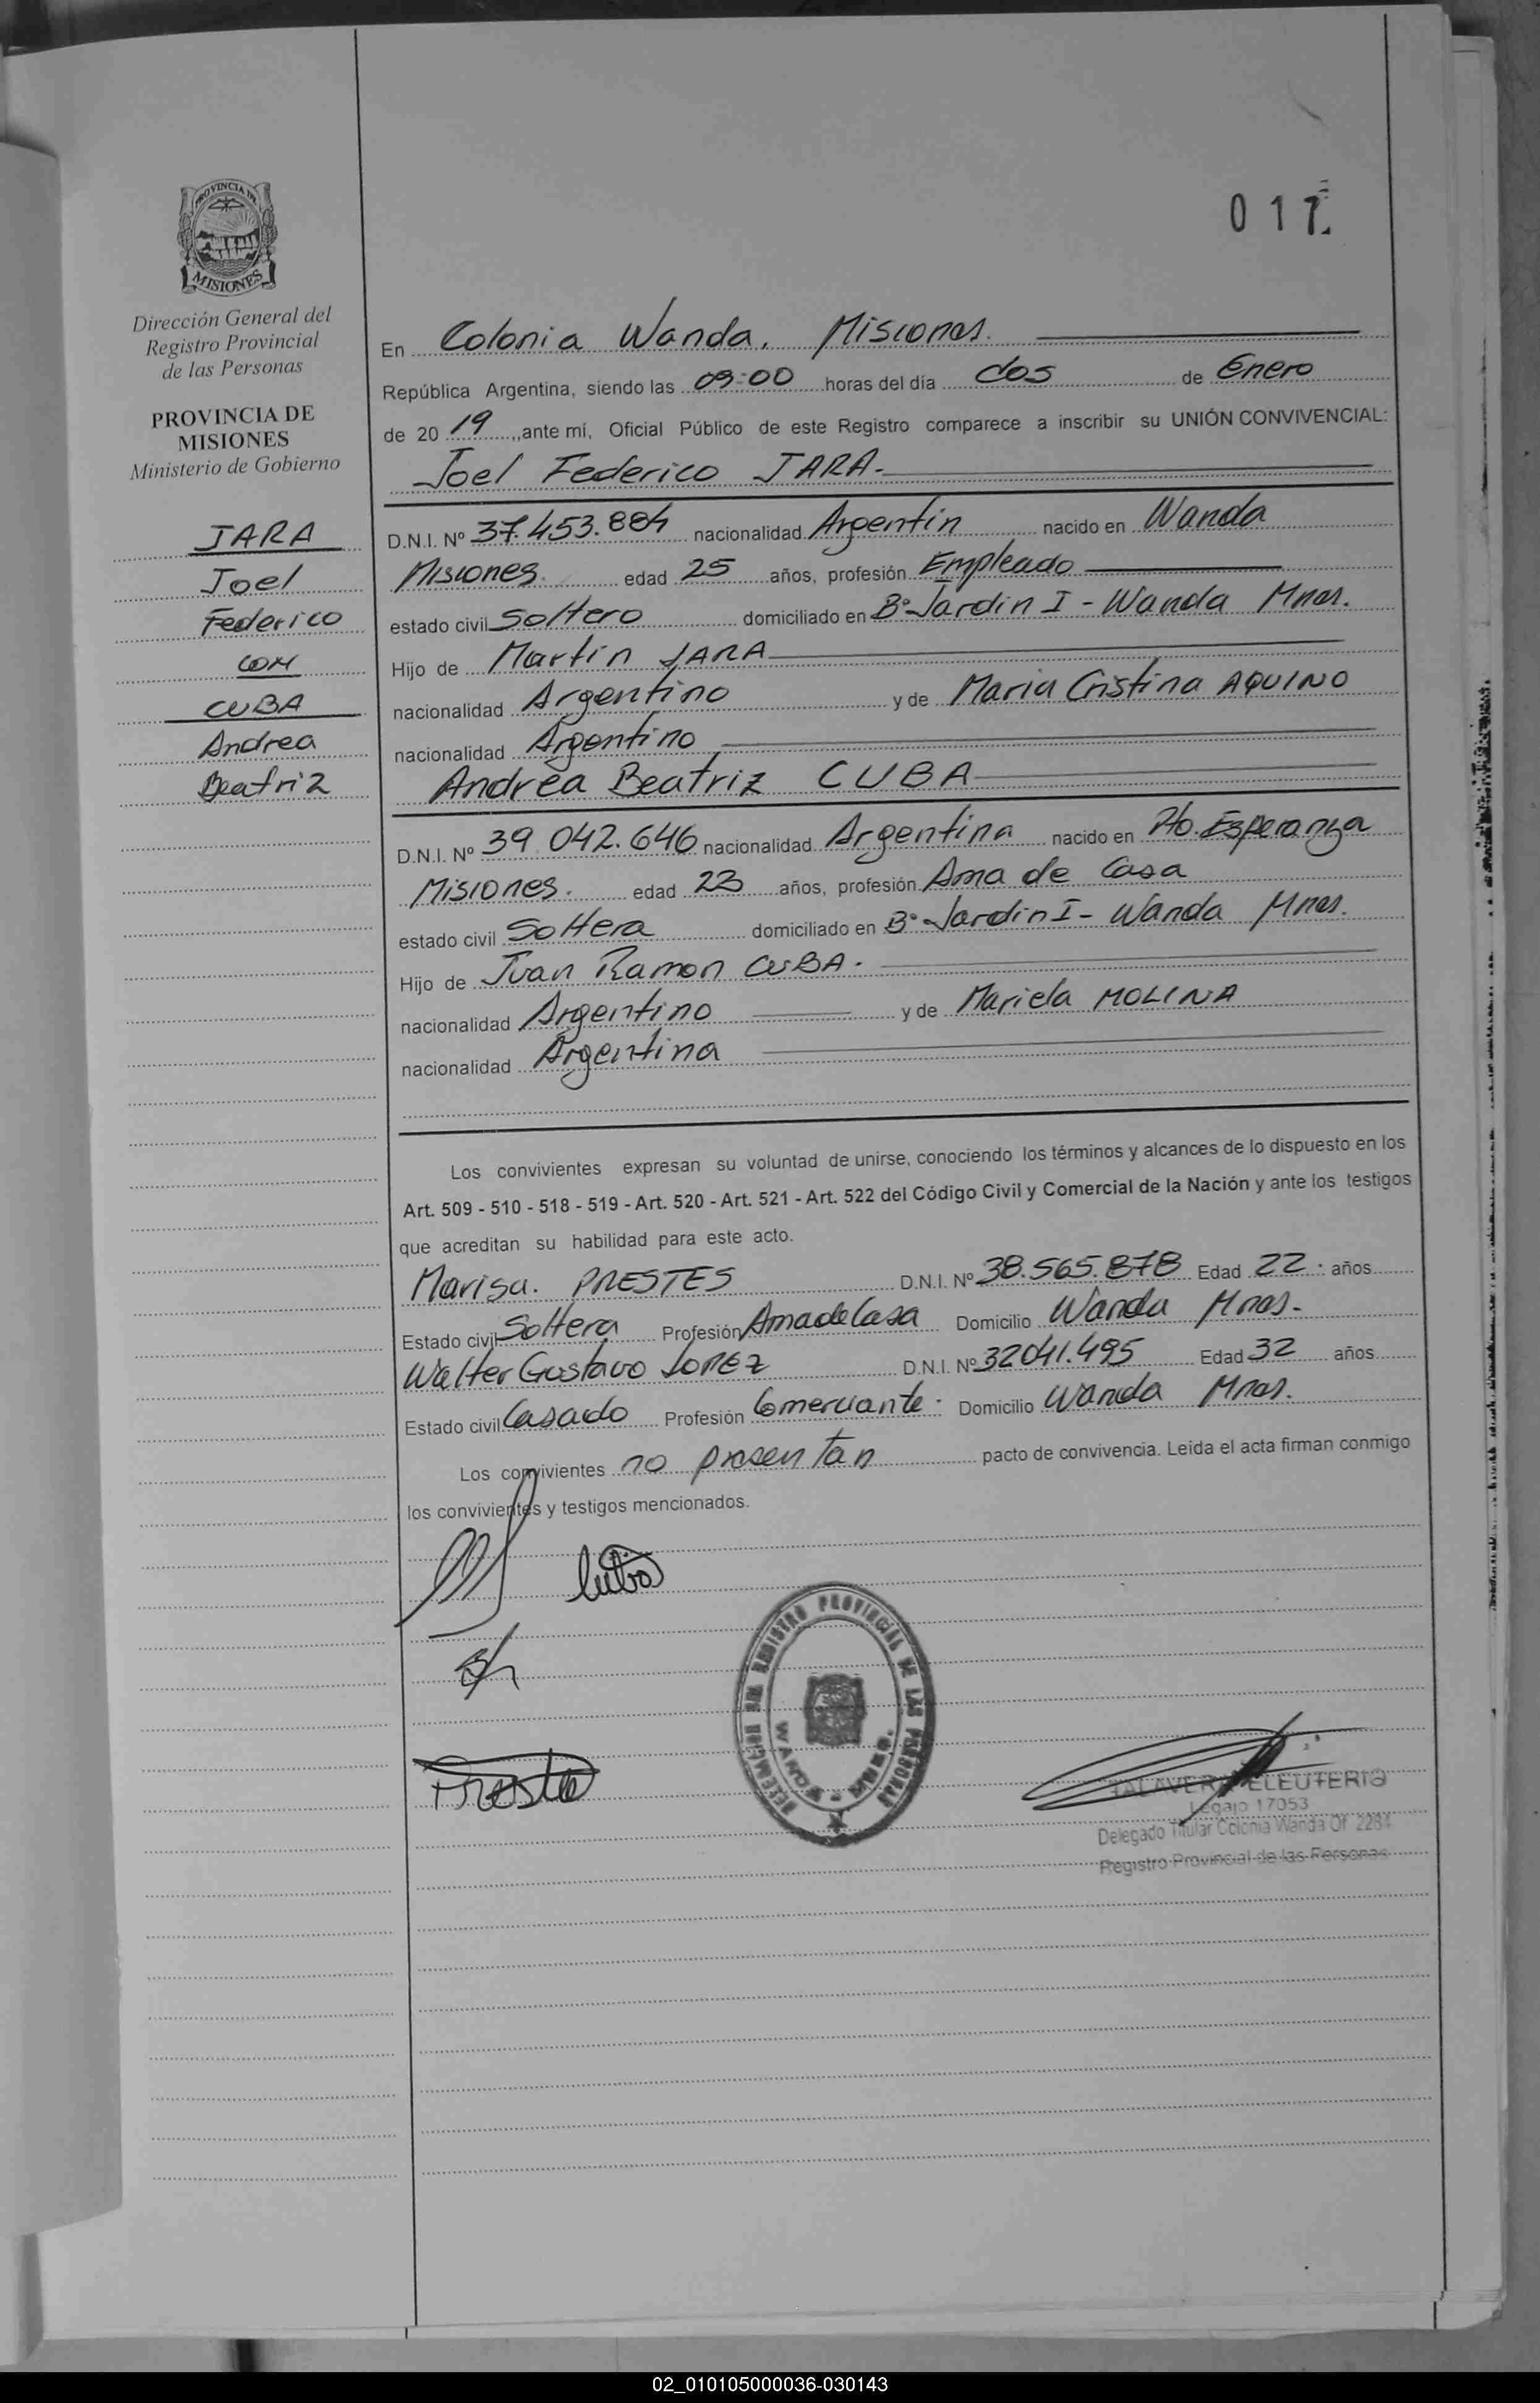 017
PROVINCIA DE
MISIONES
Dirección General del
Registro Provincial
de las Personas
PROVINCIA DE
MISIONES
Ministerio de Gobierno
JARA
Joel
Federico
CON
CUBA
Andrea
Beatriz
En Colonia Wanda, Misiones.
República Argentina, siendo las 09:00 horas del día dos de Enero
de 20 19, ante mí, Oficial Público de este Registro comparece a inscribir su UNIÓN CONVIVENCIAL:
Joel Federico JARA.
D.N.I. Nº 37.453.884 nacionalidad Argentin nacido en Wanda
Misiones. edad 25 años, profesión Empleado
estado civil Soltero domiciliado en Bº Jardin I - Wanda Mnes.
Hijo de Martin JARA
nacionalidad Argentino y de Maria Cristina AQUINO
nacionalidad Argentino
Andrea Beatriz CUBA
D.N.I. Nº 39 042.646 nacionalidad Argentina nacido en Pto. Esperanza
Misiones. edad 23 años, profesión Ama de Casa
estado civil Soltera domiciliado en Bº Jardin I - Wanda Mnes.
Hijo de Juan Ramon CUBA.
nacionalidad Argentino y de Mariela MOLINA
nacionalidad Argentina
Los convivientes expresan su voluntad de unirse, conociendo los términos y alcances de lo dispuesto en los
Art. 509 - 510 - 518 - 519 - Art. 520 - Art. 521 - Art. 522 del Código Civil y Comercial de la Nación y ante los testigos
que acreditan su habilidad para este acto.
Marisa. PRESTES D.N.I. Nº 38.565.878 Edad 22 años
Estado civil Soltera Profesión Ama de Casa Domicilio Wanda Mnes.
Walter Gustavo LOPEZ D.N.I. Nº 32041.495 Edad 32 años
Estado civil Casado Profesión Comerciante. Domicilio Wanda Mnes.
Los convivientes no presentan pacto de convivencia. Leída el acta firman conmigo
los convivientes y testigos mencionados.
REGISTRO PROVINCIAL DE LAS PERSONAS
WANDA - MNES.
TALAVERA ELEUTERIO
Legajo 17053
Delegado Titular Colonia Wanda Of. 2284
Registro Provincial de las Personas
02_010105000036-030143